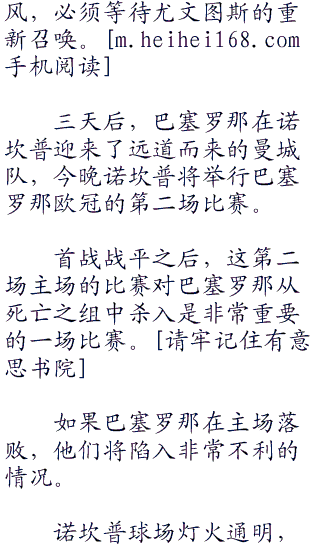 风，必须等待尤文图斯的重
新召唤。[m.heihei168.com
手机阅读]
三天后，巴塞罗那在诺
坎普迎来了远道而来的曼城
队，今晚诺坎普将举行巴塞
罗那欧冠的第二场比赛。
首战战平之后，这第二
场主场的比赛对巴塞罗那从
死亡之组中杀入是非常重要
的一场比赛。[请牢记住有意
思书院]
如果巴塞罗那在主场落
败，他们将陷入非常不利的
情况。
诺坎普球场灯火通明，